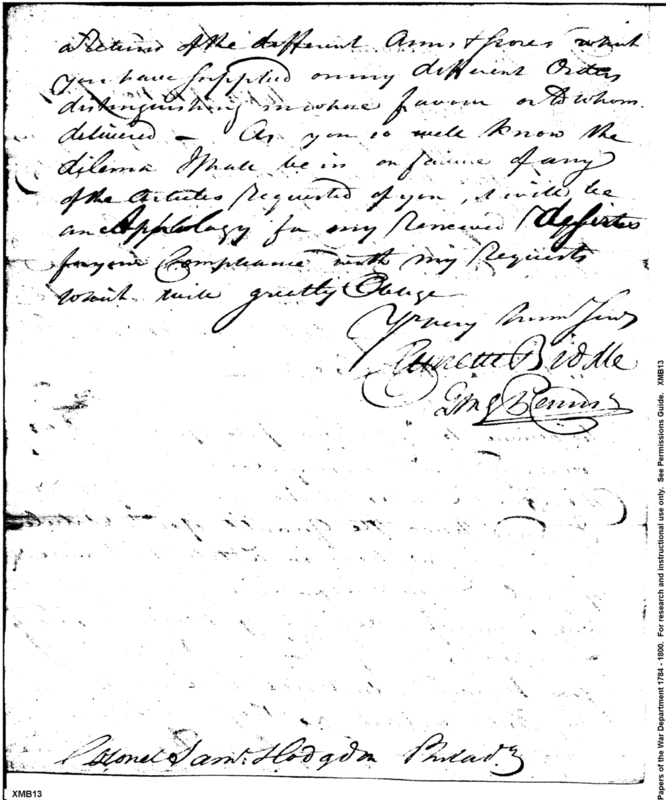 a Return of the different Arms & Stores which
you have Supplied on my different Orders
distinguishing in whose favour or to whom
delivered – As you so well know the
dilema I shall be in on failure of any
of the Articles Requested of you, it will be
an Appology for my Renewed desires
for your Compliance with my Requests
which will greatly Oblige
Yr very Humb Servt
Clement Biddle
QMG Penns
Colonel Saml Hodgdon Philada
XMB13
Papers of the War Department 1784 - 1800. For research and instructional use only. See Permissions Guide. XMB13